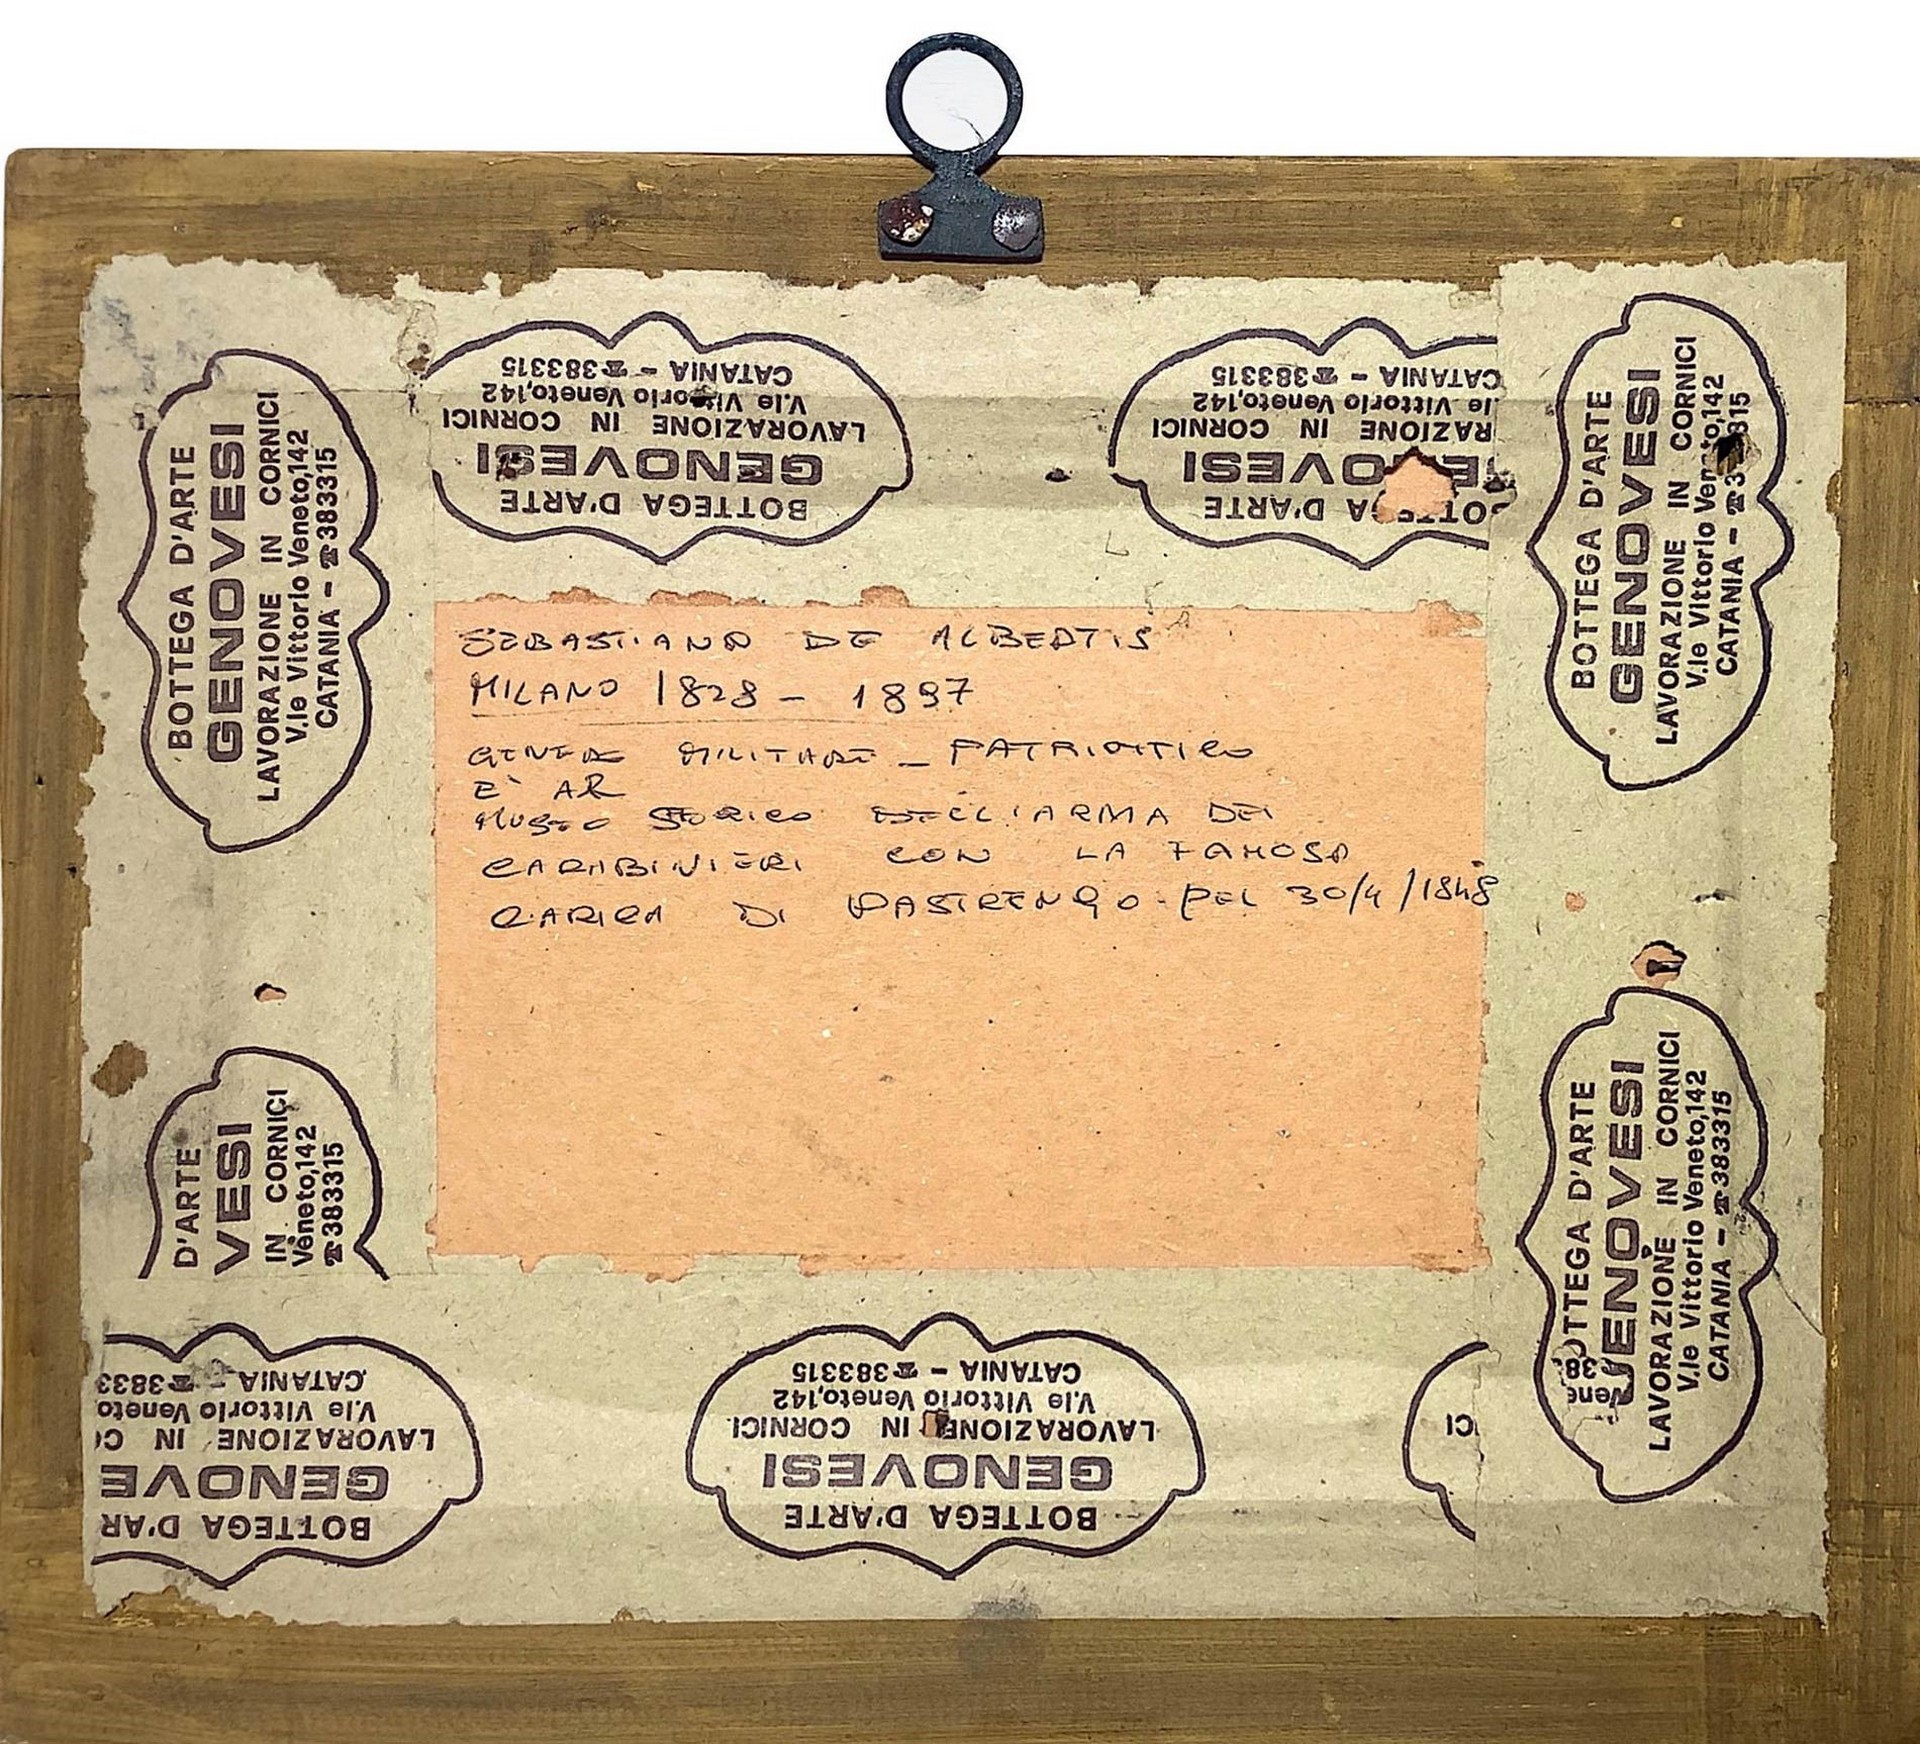 BOTTEGA D'ARTE
GENOVESI
LAVORAZIONE IN CORNICI
V.le Vittorio Veneto,142
CATANIA - ☎383315
BOTTEGA D'ARTE
GENOVESI
LAVORAZIONE IN CORNICI
V.le Vittorio Veneto,142
CATANIA - ☎383315
BOTTEGA D'ARTE
GENOVESI
RAZIONE IN CORNICI
.le Vittorio Veneto,142
CATANIA - ☎383315
BOTTEGA D'ARTE
GENOVESI
LAVORAZIONE IN CORNICI
V.le Vittorio Veneto,142
CATANIA - ☎3 315
SEBASTIANO DE ALBERTIS
MILANO 1828 - 1897
GENERE MILITARE - PATRIOTTICO
E' AR
MUSEO STORICO DELL'ARMA DEI
CARABINIERI CON LA FAMOSA
CARICA DI PASTRENGO DEL 30/4/1848
D'ARTE
VESI
IN CORNICI
Veneto,142
☎383315
OTTEGA D'ARTE
GENOVESI
LAVORAZIONE IN CORNICI
V.le Vittorio Veneto,142
CATANIA - ☎383315
38
Vene
BOTTEGA D'AR
GENOVE
LAVORAZIONE IN CO
V.le Vittorio Veneto
CATANIA - ☎3833
BOTTEGA D'ARTE
GENOVESI
LAVORAZIONE IN CORNICI
V.le Vittorio Veneto,142
CATANIA - ☎383315
CI